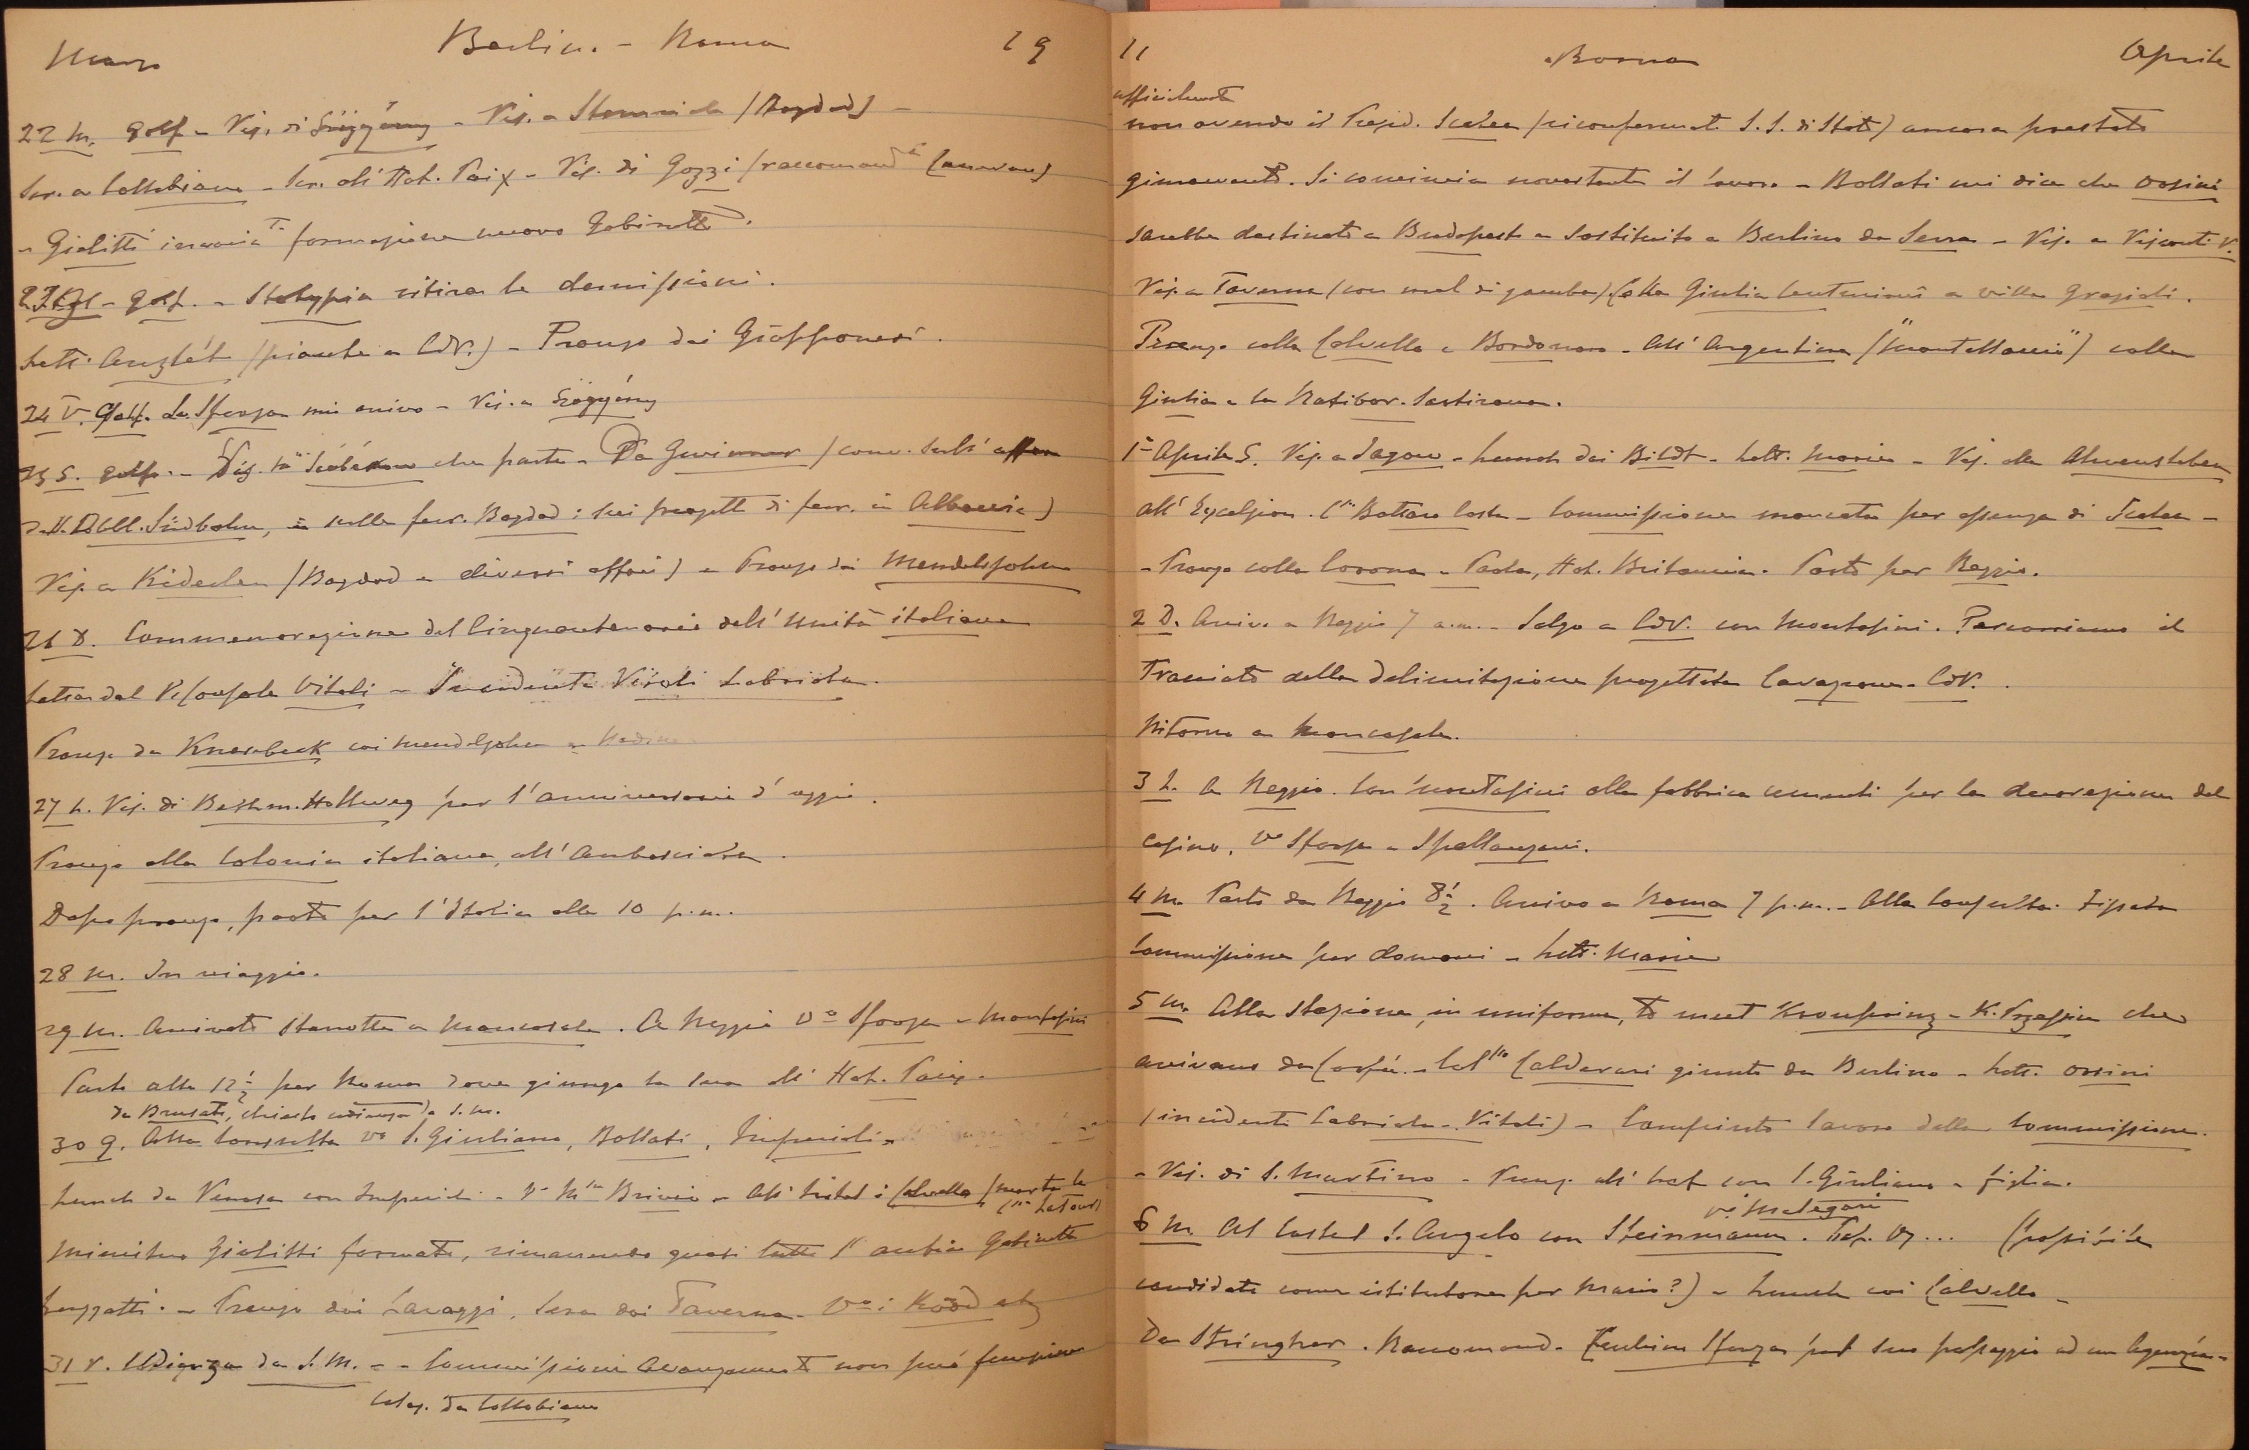 Marzo Berlin. - Roma 19
22 M. golf - Vis. di Szögyény - Vis. a Stemrich (Bagdad) -
Scr. a Costabiane - Scr. all' Hot. Paix - Vis. di Gozzi
- Giolitti formazione nuovo Gabinetto.
golf. - Stolypin ritira le demissioni.
Lett. Anzlét (piante a CdV.) - Pranzo dai Giapponesi.
24 V. Golf. La Sforza mi - Vis. a Szögyény
25 S. golf. - che parte - Da Gwinner (conv. sull' affare
Südbahn, e sulle ferr. Bagdad; sui progetti di ferr. in Albania)
Vis. a Kiderlen (Bagdad e diversi affari) - Pranzo dai Mendelssohn
26 D. Commemorazione del Cinquantenario dell' Unità italiana
Lettera del V. Console Vitali - Incidente Vitali Labriola.
Pranzo da Knesebeck coi Mendelsohn
27 L. Vis. di Bethm. Hollweg per l'anniversario d'oggi.
Pranzo alla Colonia italiana, all' Ambasciata.
Dopo pranzo, parto per l'Italia alle 10 p.m.
28 M. In viaggio.
29 M. Arrivato stanotte a Mancasale. A Reggio Vo Sforza - Montasini
Parto alle 12½ per Roma dove giungo la sera all' Hot. Paix.
da Brusati, chiesto udienza da S.M.
30 G. Alla Consulta vo S. Giuliano, Bollati, Imperiali -
Lunch da Venosa con Imperiali - Brivio - Calvello (morta la
Ministero Giolitti formato, rimanendo quasi tutto l'antico Gabinetto
Luzzatti. - Pranzo dai Lavaggi. Sera dai Taverna.
31 V. Udienza da S.M. - - Commissioni Avanzamento non può funzionare
Coloq. da Costabiane
11 Roma Aprile
ufficialmente
non avendo il Presid. Scalea (riconfermato S.S. di Stato) ancora prestato
giuramento. Si comincia nonostante il lavoro - Bollati mi dice che Orsini
sarebbe destinato a Budapest e sostituito a Berlino da Serra - Vis. a Visconti V.
Vis. a Taverna (con mal di gamba). Colla Giulia Centurioni a villa Grazioli.
Pranzo colla Calvello e Bordonaro - All' Argentina ("Montellanico") colla
Giulia e la Ratibor. Sartirana.
1° Aprile S. Vis. a Jagow - Lunch dai Bildt - Lett. Maria - Vis. alla Alvensleben
all' Excelsior. Bottaro Costa - Commissione mancata per assenza di Scalea -
- Pranzo colla Corona - Paola, Hot. Britannia. Parto per Reggio.
2 D. Arrivo a Reggio 7 a.m. - Salgo a CdV. con Montasini. Percorriamo il
tracciato della delimitazione progettata Cavazzone - CdV.
Ritorno a Mancasale.
3 L. A Reggio. Con Montasini alla fabbrica cementi per la decorazione del
casino. Vo Sforza - Spallanzani.
4 M. Parto da Reggio 8½. Arrivo a Roma 7 p.m. - Alla Consulta. Fissata
Commissione per domani - Lett. Maria
5 M. Alla stazione, in uniforme, to meet Kronprinz - K. Przessin che
arrivano da Corfù. - Col.llo Calderari giunto da Berlino - Lett. Orsini
(incidente Labriola - Vitali) - Compiuto lavoro della Commissione.
- Vis. di S. Martino - Pranz. all' con S. Giuliano e figlia.
vo Malegari
6 M. Al Castel S. Angelo con Steinmann. (possibile
candidato come istitutore per Mario?) - Lunch coi Calvello -
Da Stringher. Raccomand. Sforza pel suo passaggio ad un'Agenzia -